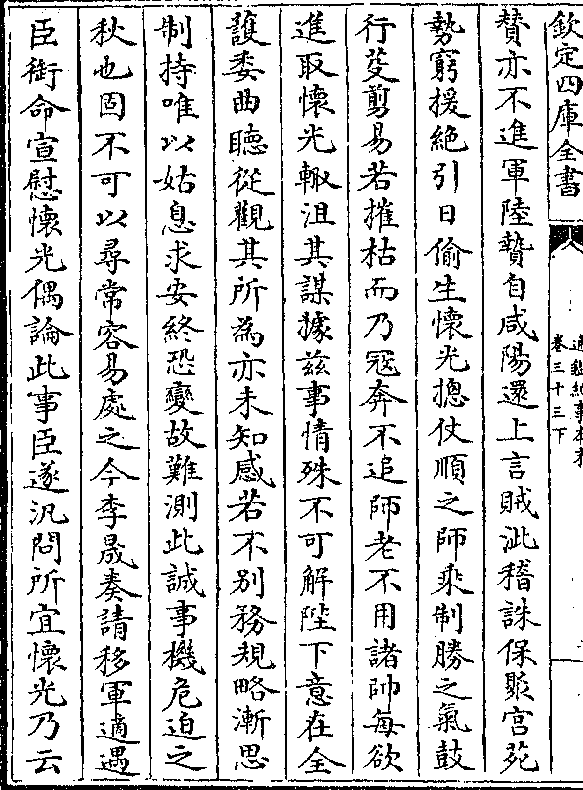 欽定四庫全書
通鑑紀事本末
卷三十三下
贊亦不進軍陸贄自咸陽還上言賊泚稽誅保聚宫苑
勢窮援絶引日偷生懷光摠仗順之師乘制勝之氣鼓
行芟剪易若摧枯而乃冦奔不追師老不用諸帥每欲
進取懷光輙沮其謀據兹事情殊不可解陛下意在全
護委曲聽從觀其所為亦未知感若不别務規略漸思
制持唯以姑息求安終恐變故難測此誠事機危迫之
秋也固不可以尋常容易處之今李晟奏請移軍適遇
臣銜命宣慰懷光偶論此事臣遂汎問所宜懷光乃云